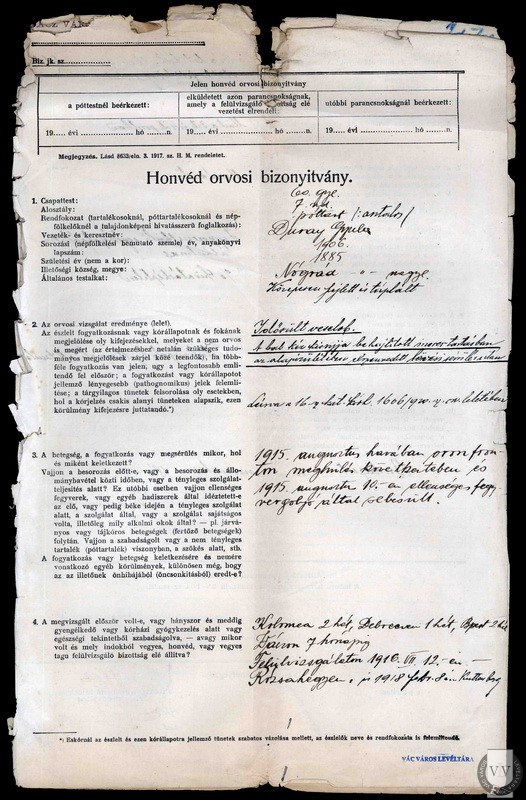 Biz. jk. sz.
Jelen honvéd orvosi bizonyitvány
a póttestnél beérkezett:
elküldetett azon parancsnokságnak, amely a felülvizsgáló bizottság elé vezetést elrendeli:
utóbbi parancsnokságnál beérkezett:
19..... évi ........ hó ........n.
19..... évi ........ hó ........n.
19..... évi ........ hó ........n.
Megjegyzés. Lásd 8633/eln. 3. 1917. sz. H. M. rendeletet.
Honvéd orvosi bizonyitvány.
1. Csapattest:
Alosztály:
Rendfokozat (tartalékosoknál, póttartalékosoknál és népfölkelőknél a tulajdonképeni hivatásszerű foglalkozás):
Vezeték- és keresztnév:
Sorozási (népfölkelési bemutató szemle) év, anyakönyvi lapszám:
Születési év (nem a kor):
Illetőségi község, megye:
Általános testalkat:
Duray Gyula
1906.
1885
Nógrád megye.
Közepesen fejlett és táplált
2. Az orvosi vizsgálat eredménye (lelet).
Az észlelt fogyatkozásnak vagy kórállapotnak és fokának
megjelölése oly kifejezésekkel, melyeket a nem orvos
is megért (az értelmezéshez netalán szükséges tudományos
megjelölések zárjel közé teendők), ha többféle
fogyatkozás van jelen, ugy a legfontosabb említendő
fel először; a fogyatkozást vagy kórállapotot
jellemző lényegesebb (pathognomikus) jelek felemlitése;
a tárgyilagos tünetek felsorolása oly esetekben,
hol a kórjelzés csakis alanyi tüneteken alapszik, ezen
körülmény kifejezésre juttatandó.*)
Idősült veselob.
A bal kéz kisujja behajlított merev tartásban
3. A betegség, a fogyatkozás vagy megsérülés mikor, hol
és miként keletkezett?
Vajjon a besorozás előtt-e, vagy a besorozás és állománybavétel
közti időben, vagy a tényleges szolgálatteljesités
alatt? Ez utóbbi esetben vajjon ellenséges
fegyverek, vagy egyéb hadiszerek által idéztetett-e
az elő, vagy pedig béke idején a tényleges szolgálat
alatt, a szolgálat által, vagy a szolgálat sajátságos
volta, illetőleg mily alkalmi okok által? — pl. járványos
vagy tájkóros betegségek (fertőző betegségek)
folytán. Vajjon a szabadságolt vagy a nem tényleges
tartalék (póttartalék) viszonyban, a szökés alatt, stb.
A fogyatkozás vagy betegség keletkezésére és nemére
vonatkozott egyéb körülmények, különösen még, hogy
az az illetőnek önhibájából (öncsonkitásból) eredt-e?
1915. augusztus havában orosz fronton
meghülés következtében és
1915. augusztus 10.-én ellenséges fegyvergolyó
által sebesült.
4. A megvizsgált először volt-e, vagy hányszor és meddig
gyengélkedő vagy kórházi gyógykezelés alatt vagy
egészségi tekintetből szabadságolva, — avagy mikor
volt és mely indokból vegyes, honvéd, vagy vegyes
tagu felülvizsgáló bizottság elé állitva?
Kolomea 2 hét, Debrecen 1 hét, Bpest 2 hó
7 hónapig
Felülvizsgálaton 1916. VII. 12.-én —
és 1918 febr. 8.án Kuttenberg
*) Eskórnál az észlelt és ezen kórállapotra jellemző tünetek szabatos vázolása mellett, az észlelők neve és rendfokozata is felemlitendő.
VÁC VÁROS LEVÉLTÁRA
VV